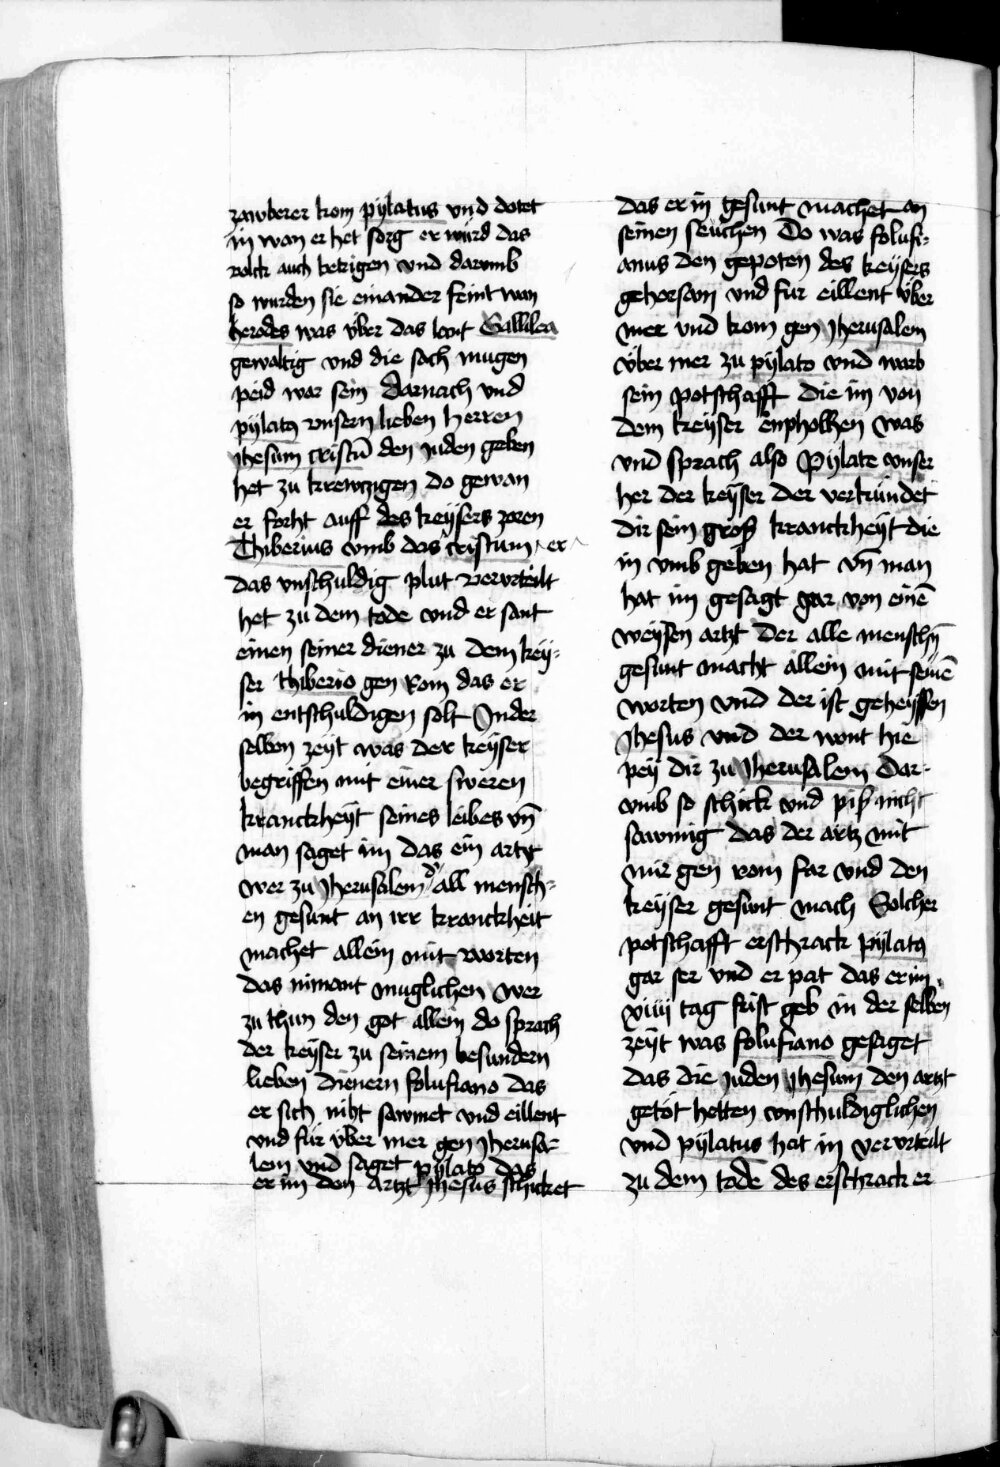 zawberer kom pylatus vnd dotet
in wan er het sorg er wurd das
volck auch betrigen vnd darumb
so wurden sie einander feint wan
herodes was vber das lant Gallilea
gewaltig vnd die sach mugen
peid war sein Darnach vnd
pylatus vnsern lieben herren
Jhesum cristū den juden geben
het zu krewczigen do gewan
er forht auff des keysers zoren
Thiberius vmb das cristum er
das vnschuldig plut vervrteilt
het zu dem tode vnd er sant
einen seiner diener zu dem key-
ser thiberio gen Rom das er
in entschuldigen solt In der
selben zeyt was der keyser
begriffen mit einer sweren
kranckheyt seines leibes vn̄
man saget im das ein artzt
wer zu Jherusalem d' all mensch-
en gesunt an irr kranckheit
machet allein mit worten
das nimant muglichen wer
zu thun den got allein do sprach
der keyser zu seinem besundern
lieben dienern folusiano das
er sich niht sawmet vnd eillent
vnd für vber mer gen Jherusa-
lem vnd saget pylato das
er im den Artzt Jhesus schicket
das er in gesunt machet an
seinen seuchen Do was folusi-
anus den gepoten des keysers
gehorsam vnd fur eillent vber
mer vnd kom gen Jherusalem
vber mer zu pylato vnd warb
sein potschafft die im von
dem keyser enpholhen was
vnd sprach also Pylate vnser
her der keyser der verkündet
dir sein groß kranckheyt die
in vmb geben hat vn̄ man
hat im gesagt gar von einē
weysen artzt der alle menschn̄
gesunt macht allein mit seinē
worten vnd der ist geheyssen
Jhesus vnd der wont hie
pey dir zu Jherusalem Dar-
vmb so schick vnd piß nicht
sawmig das der artz mit
mir gen rom far vnd den
keyser gesunt mach Solcher
potschafft erschrack pylatus
gar ser vnd er pat das er im
xiiij tag frist geb in der selben
zeyt was folusiano gesaget
das die juden Jhesum den artzt
getöt hetten vnschuldiglichen
vnd pylatus hat in vervrteilt
zu dem tode des erschrack er